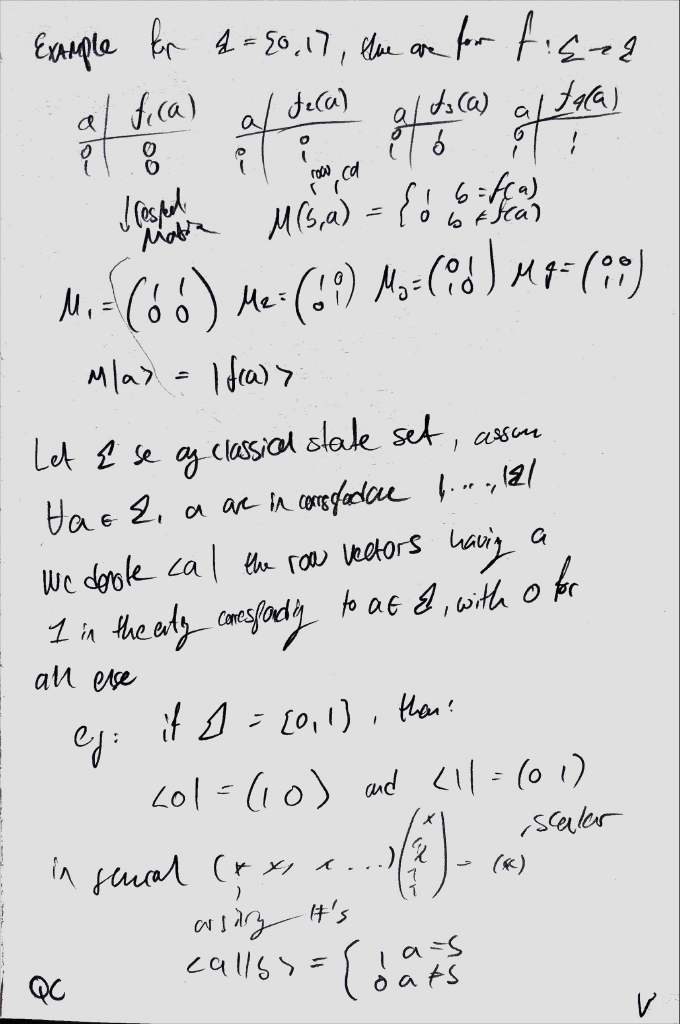 Example for Σ = {0,1}, there are four f: Σ → Σ
a | f₁(a)    a | f₂(a)    a | f₃(a)    a | f₄(a)
0 | 0    0 | 0    0 | 1    0 | 1
1 | 0    1 | 1    1 | 0    1 | 1
row, col
↓ respect. Matrix    M(b,a) = { 1 b = f(a)
0 b ≠ f(a)
M₁ = (1 1 / 0 0)  M₂ = (1 0 / 0 1)  M₃ = (0 1 / 1 0)  M₄ = (0 0 / 1 1)
M|a> = |f(a)>
Let Σ be any classical state set, assume
∀a ∈ Σ, a are in correspondence 1, ..., |Σ|
We denote <a| the row vectors having a
1 in the entry corresponding to a ∈ Σ, with 0 for
all else
eg: if Σ = {0,1}, then:
<0| = (1 0) and <1| = (0 1)
, scalar
in general (* * * ...) (* * * * *) = (*)
arbitrary #'s
<a||b> = { 1 a = b
0 a ≠ b
QC
V